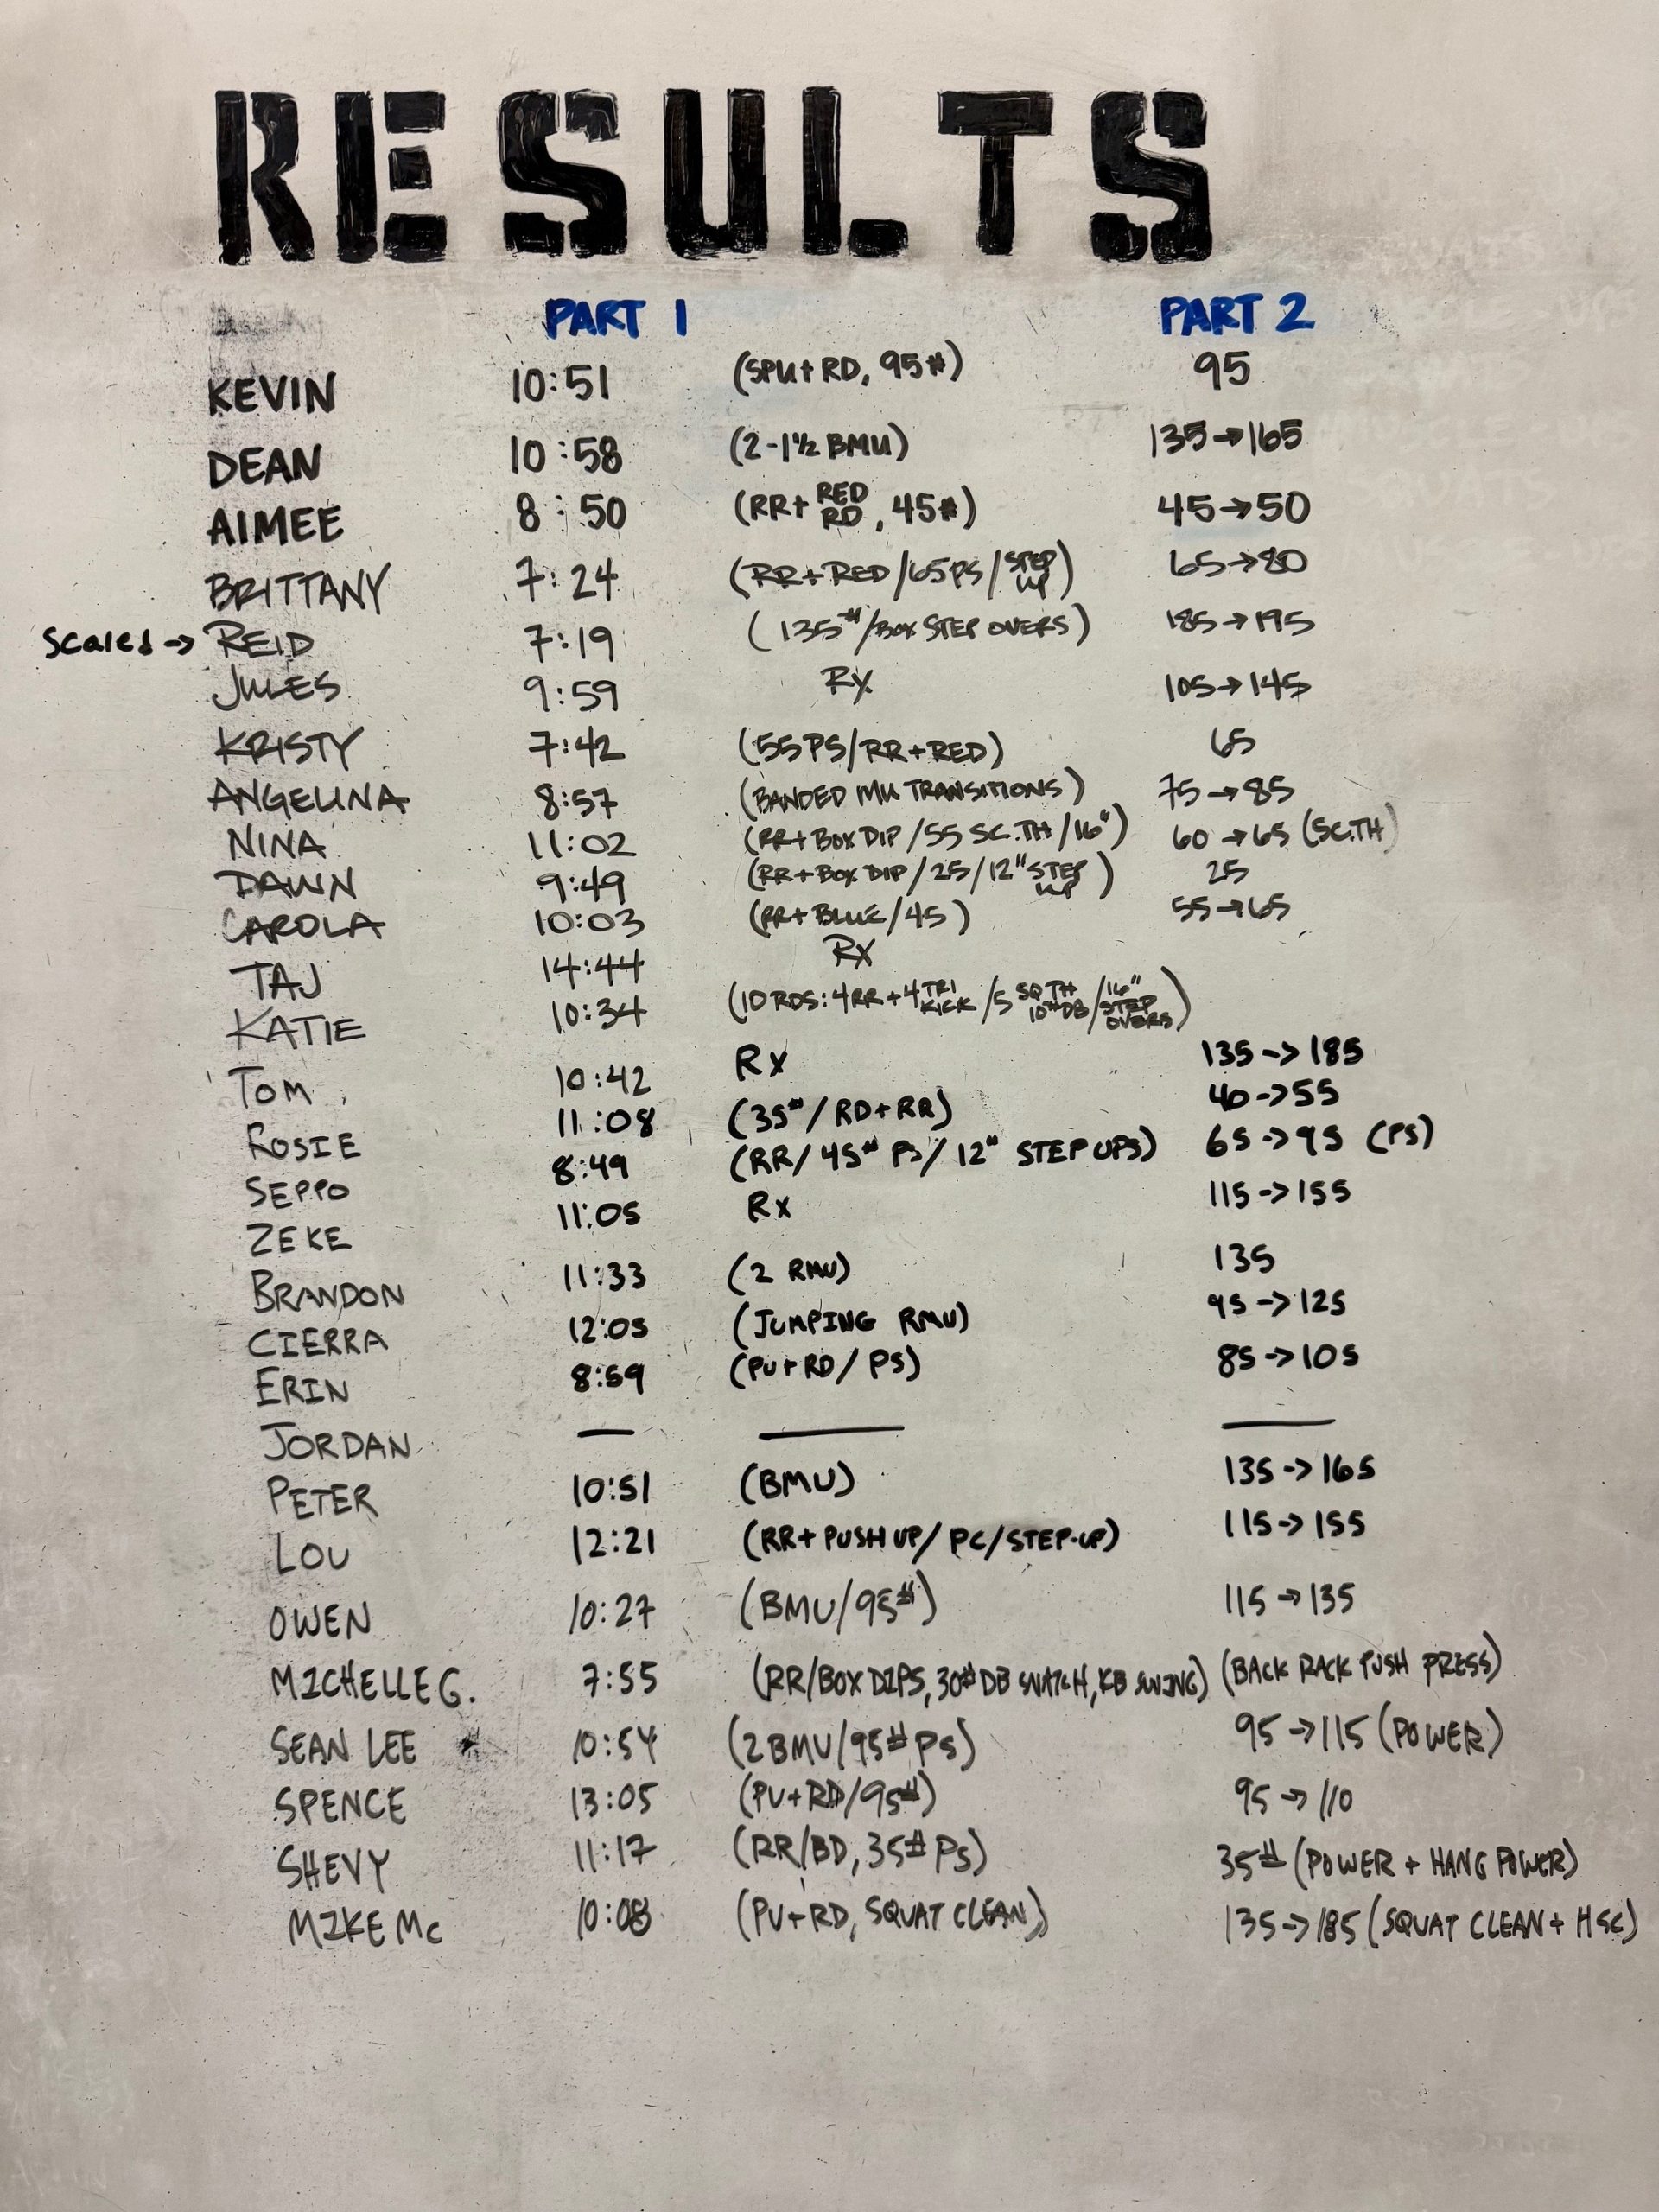 RESULTS
PART 1 PART 2
KEVIN 10:51 (SPU+RD, 95#) 95
DEAN 10:58 (2-1½ BMU) 135→165
AIMEE 8:50 (RR+ RED RD, 45#) 45→50
BRITTANY 7:24 (RR+RED/65PS/STEP UP) 65→80
Scaled → REID 7:19 (135#/BOX STEP OVERS) 185→195
JULES 9:59 RX 105→145
KRISTY 7:42 (55PS/RR+RED) 65
ANGELINA 8:57 (BANDED MU TRANSITIONS) 75→85
NINA 11:02 (RR+BOX DIP/55 SC.TH/16") 60→65 (SC.TH)
DAWN 9:49 (RR+BOX DIP/25/12" STEP UP) 25
CAROLA 10:03 (RR+BLUE/45) 55→65
TAJ 14:44 RX
KATIE 10:34 (10 RDS: 4RR+4 TRI KICK/5 SQ TH 10# DB/16" STEP OVERS)
TOM 10:42 Rx 135->185
ROSIE 11:08 (35#/RD+RR) 40->55
SEPPO 8:49 (RR/45# PS/12" STEP UPS) 65->95 (PS)
ZEKE 11:05 Rx 115->155
BRANDON 11:33 (2 RMU) 135
CIERRA 12:05 (JUMPING RMU) 95->125
ERIN 8:59 (PU+RD/PS) 85->105
JORDAN — — —
PETER 10:51 (BMU) 135->165
LOU 12:21 (RR+PUSH UP/PC/STEP-UP) 115->155
OWEN 10:27 (BMU/95#) 115→135
MICHELLE G. 7:55 (RR/BOX DIPS, 30# DB SNATCH, KB SWING) (BACK RACK PUSH PRESS)
SEAN LEE 10:54 (2 BMU/95# PS) 95→115 (POWER)
SPENCE 13:05 (PU+RD/95#) 95→110
SHEVY 11:17 (RR/BD, 35# PS) 35# (POWER + HANG POWER)
MIKE MC 10:08 (PU+RD, SQUAT CLEAN) 135→185 (SQUAT CLEAN + HSC)